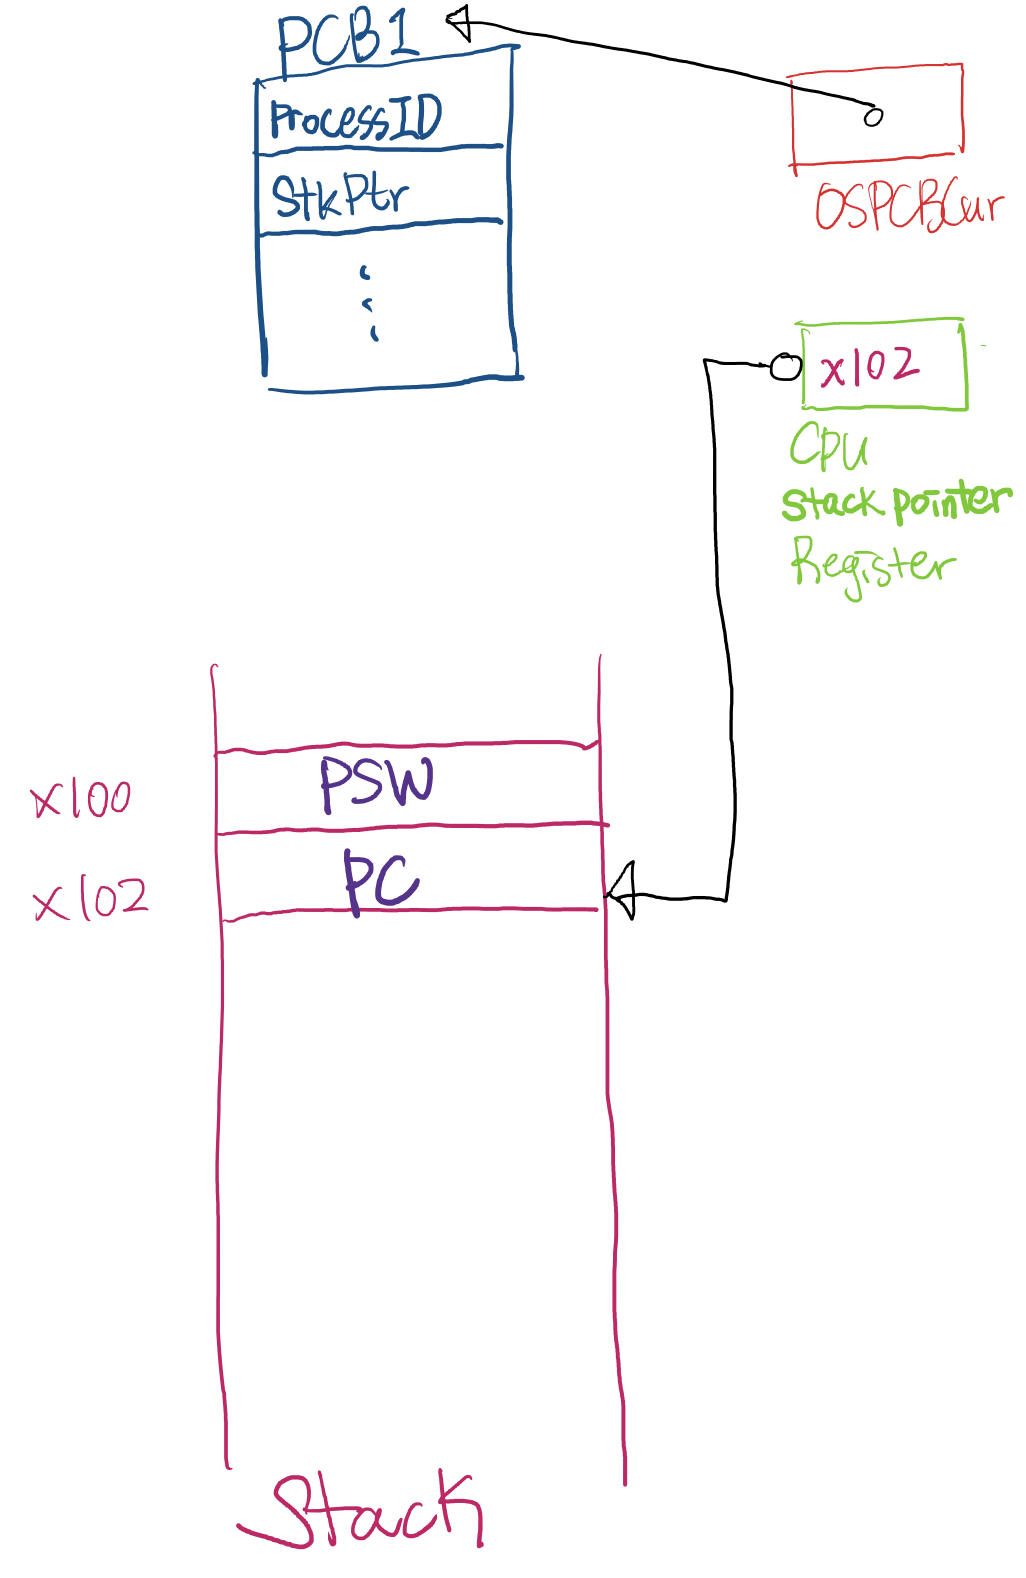 PCB1
ProcessID
StkPtr
OSPCBCur
x102
CPU
Stack pointer
Register
PSW
x100
PC
x102
Stack